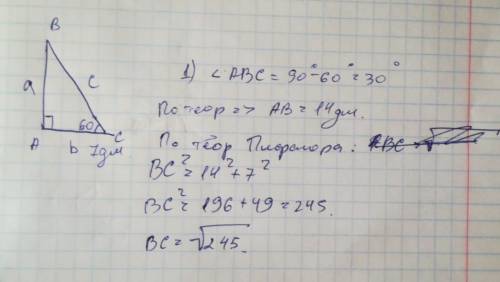 B
a
C
60°
A
b
C
7дм
1) < ABC = 90° - 60° = 30°
По теор => AB = 14 дм.
По теор Пифагора:
BC² = 14² + 7²
BC² = 196 + 49 = 245.
BC = √245.